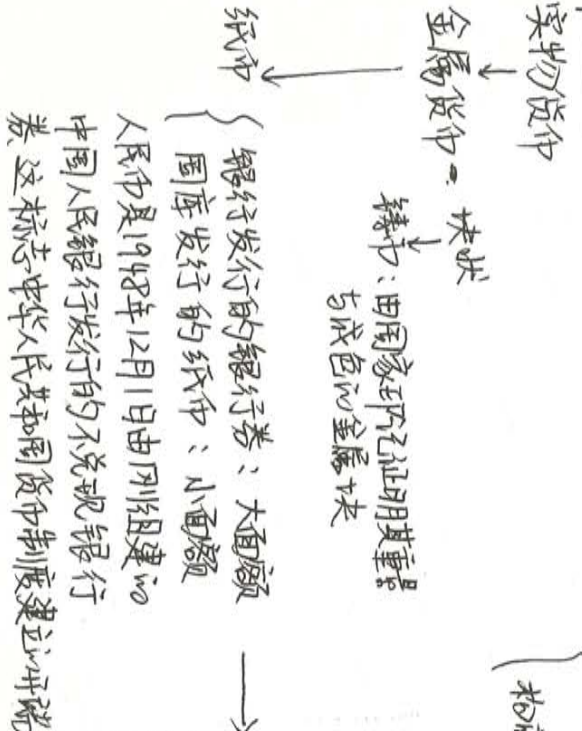 实物货币
↓
金属货币。块状
↓
铸币：由国家印记证明其重量
与成色的金属块
↓
纸币 { 银行发行的银行券：大面额 →
国库发行的纸币：小面额
人民币是1948年12月1日由刚组建的
中国人民银行发行的不兑现银行
券.这标志中华人民共和国货币制度建立的开端